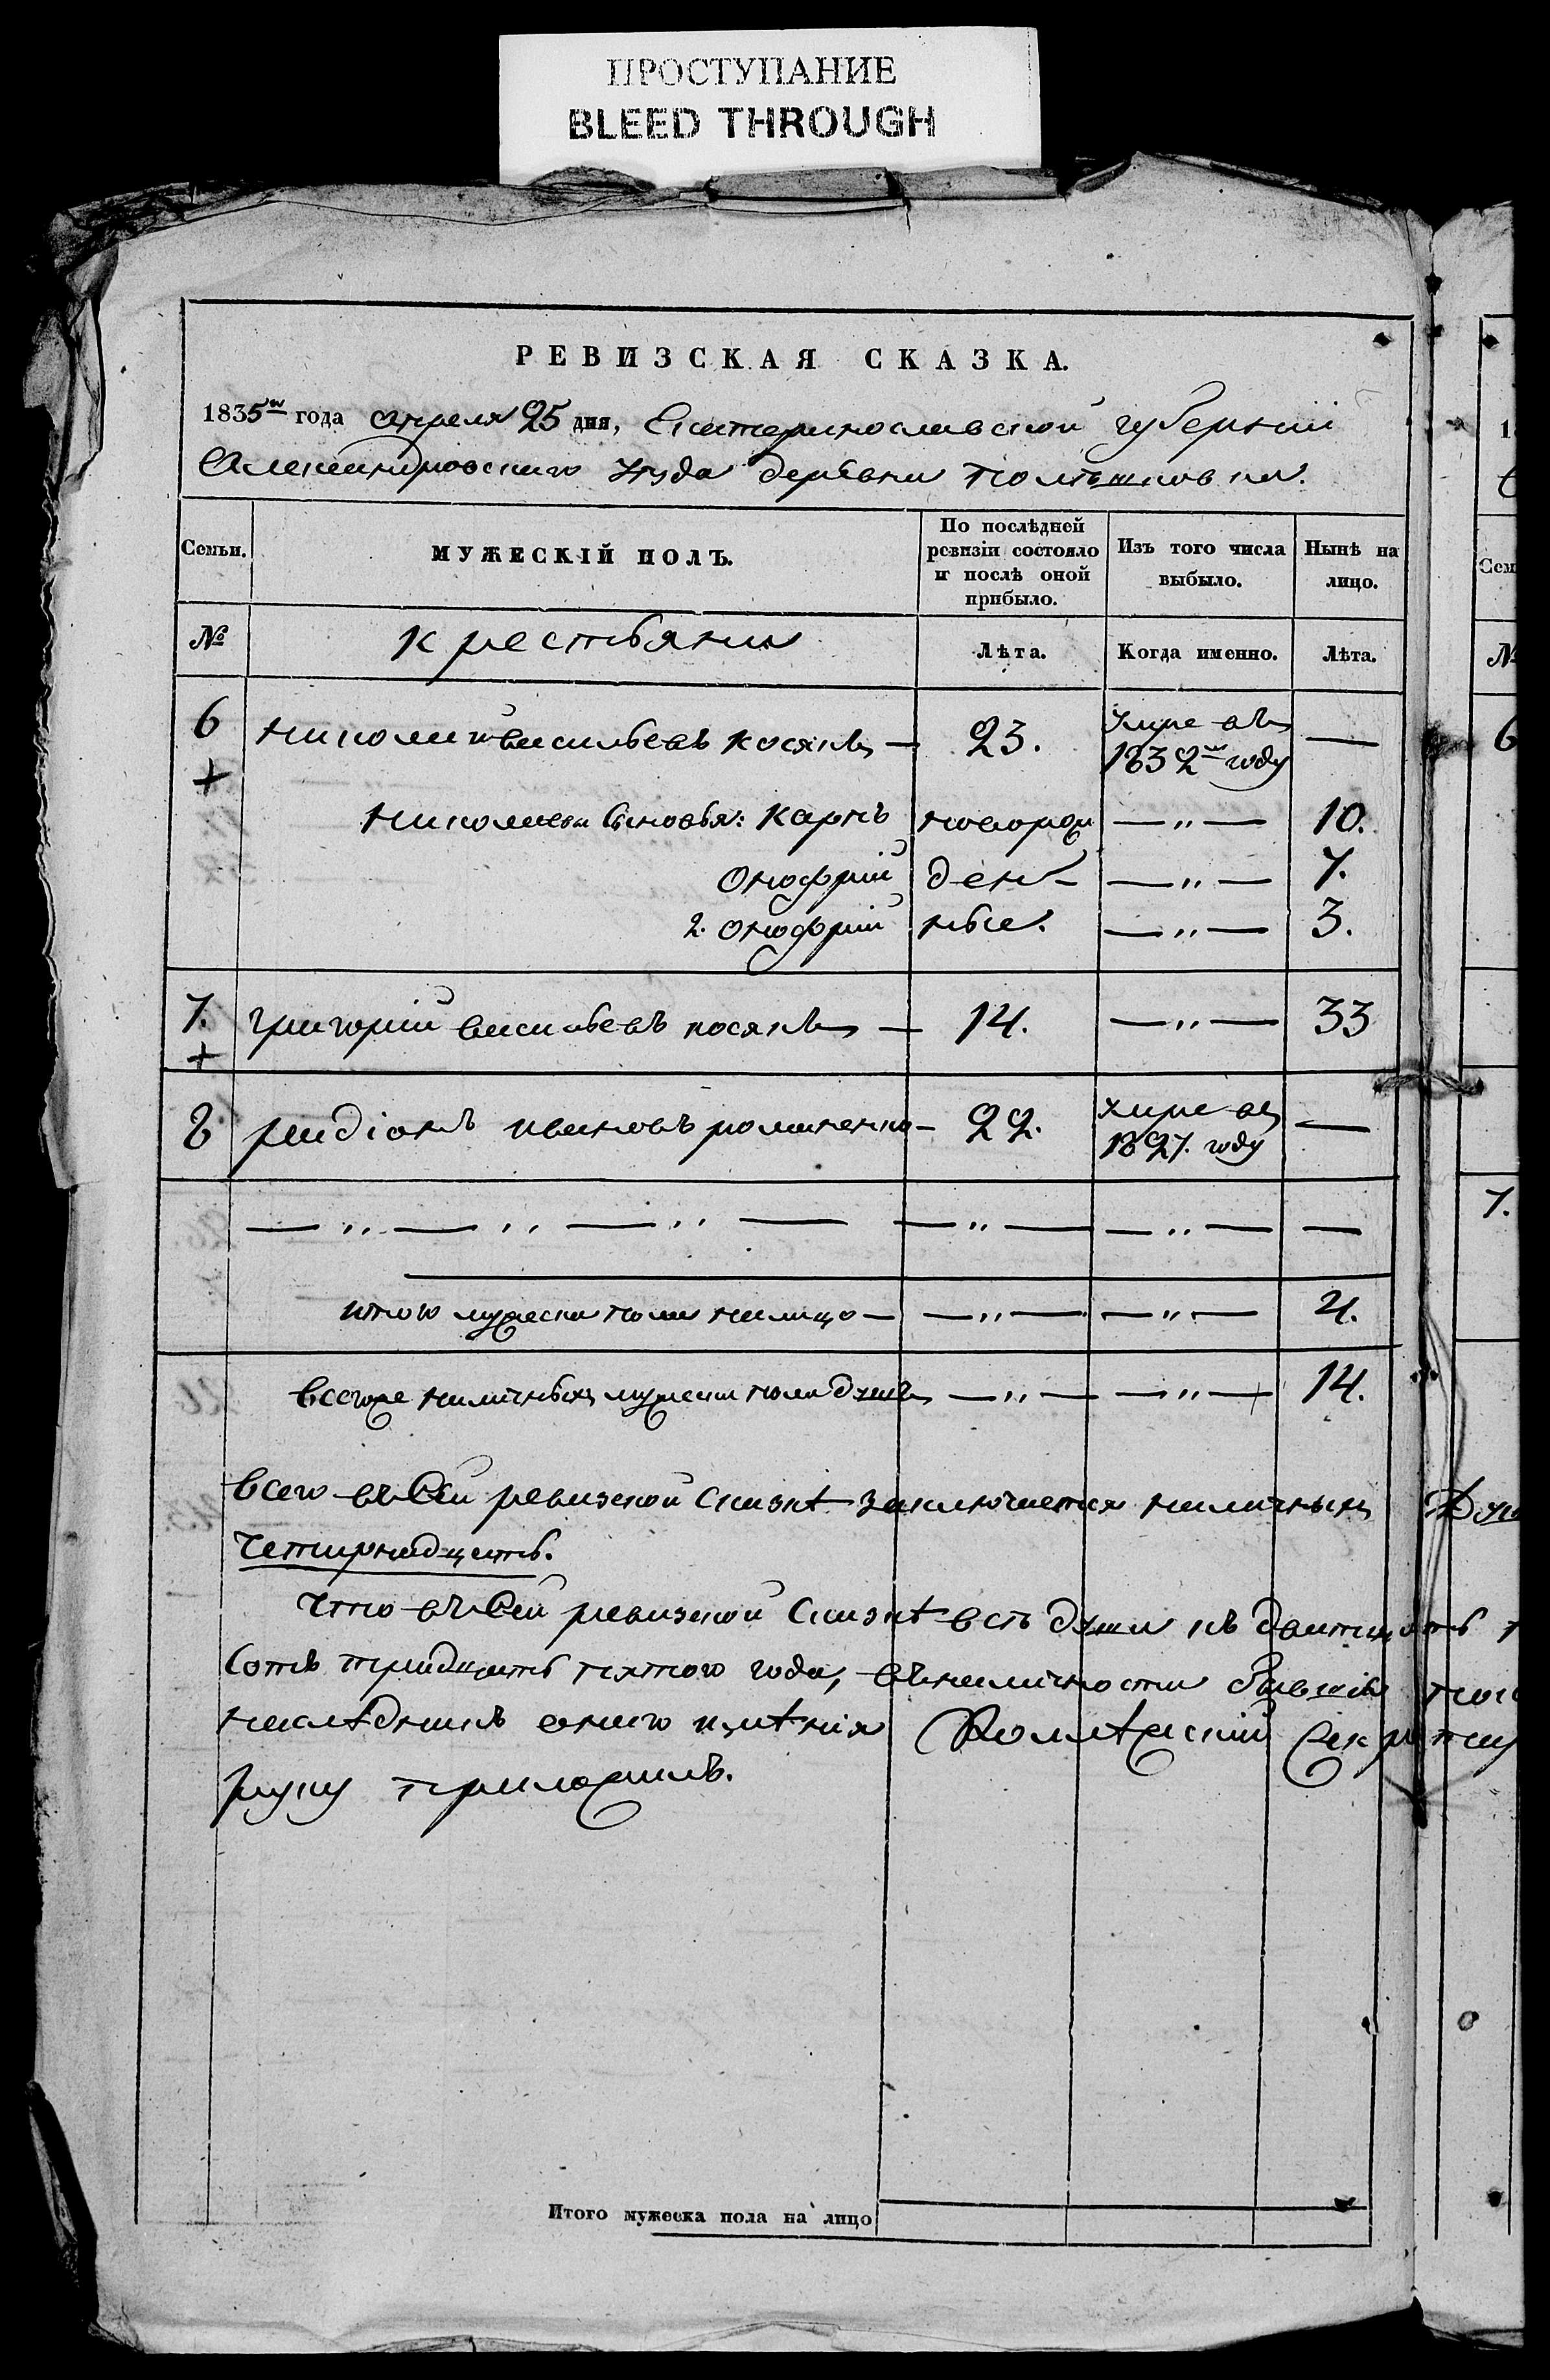 ПРОСТУПАНИЕ
BLEED THROUGH
РЕВИЗСКАЯ СКАЗКА.
1835го года апреля 25 дня, Екатеринославской губерніи
Александровскаго уезда деревни
Семьи.
МУЖЕСКІЙ ПОЛЪ.
По послѣдней ревизіи состояло и послѣ оной прибыло.
Изъ того числа выбыло.
Нынѣ на лицо.
№ крестьяни Лѣта. Когда именно. Лѣта.
6 + николай васильевъ косякъ — 23. умре въ 1832м году —
николаевы Сыновья: карпъ новорож — " — 10.
Онофрій ден- — " — 7.
2. онофрій ные. — " — 3.
7. + григорій васильевъ косякъ — 14. — " — 33
8 радіонъ ивановъ романенко — 22. умре въ 1827. году —
— " — " — " — — " — — " — —
итого мужеска пола налицо — — " — — " — 4.
всегоже наличныхъ мужеска пола душъ — " — — " — 14.
всего въ Сей ревизской Сказкѣ заключается наличныхъ
четирнадцать.
что въ Сей ревизской Сказкѣ всѣ души къ
Сотъ тридцать пятого года, въ наличности бывшіе
наследникъ оного имѣнія
руку приложилъ.
Итого мужеска пола на лицо